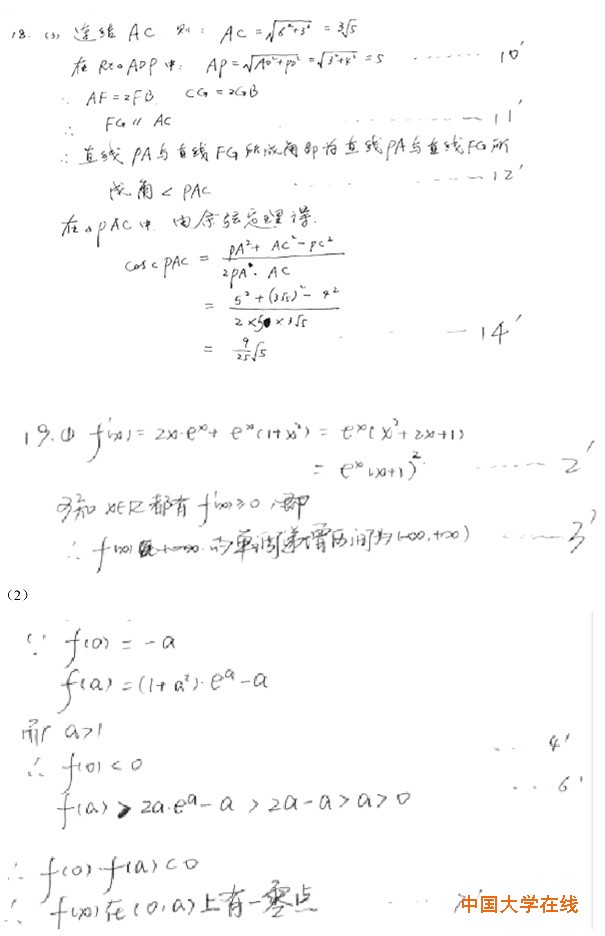 18. (3) 连结 AC 则: AC = √(6²+3²) = 3√5
在 Rt△ADP 中: AP = √(AD²+PD²) = √(3²+4²) = 5 ······ 10′
∵ AF = 2FB CG = 2GB
∴ FG // AC ······ 11′
∴ 直线 PA 与直线 FG 所成角即为直线 PA 与直线 FG 所
成角 ∠PAC ······ 12′
在△PAC 中 由余弦定理得.
cos∠PAC = (PA² + AC² - PC²) / (2PA · AC)
= (5² + (3√5)² - 4²) / (2 × 5 × 3√5)
= 9/25 √5 ······ 14′
19. ① f′(x) = 2x·eˣ + eˣ(1+x²) = eˣ(x²+2x+1)
= eˣ(x+1)² ······ 2′
可知 x∈R 都有 f′(x) ≥ 0, 即
∴ f(x) 的单调递增区间为 (-∞, +∞) ······ 3′
（2）
∵ f(0) = -a
f(a) = (1+a²)·eᵃ - a
而 a>1
∴ f(0) < 0 ··· 4′
f(a) > 2a·eᵃ - a > 2a - a > a > 0 ··· 6′
∴ f(0)·f(a) < 0
∴ f(x) 在 (0, a) 上有一零点
中国大学在线